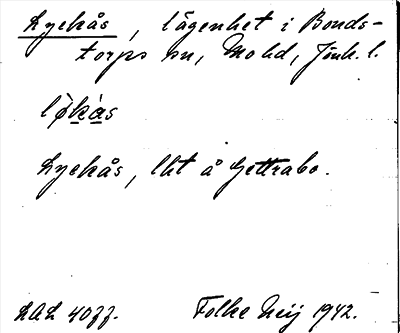 Lyckås, lägenhet i Bonds-
torps sn, Mo hd, Jönk. l.
lø̀kàs
Lyckås, lht å Gettrabo.
LAL 4077.
Folke Neij 1942.